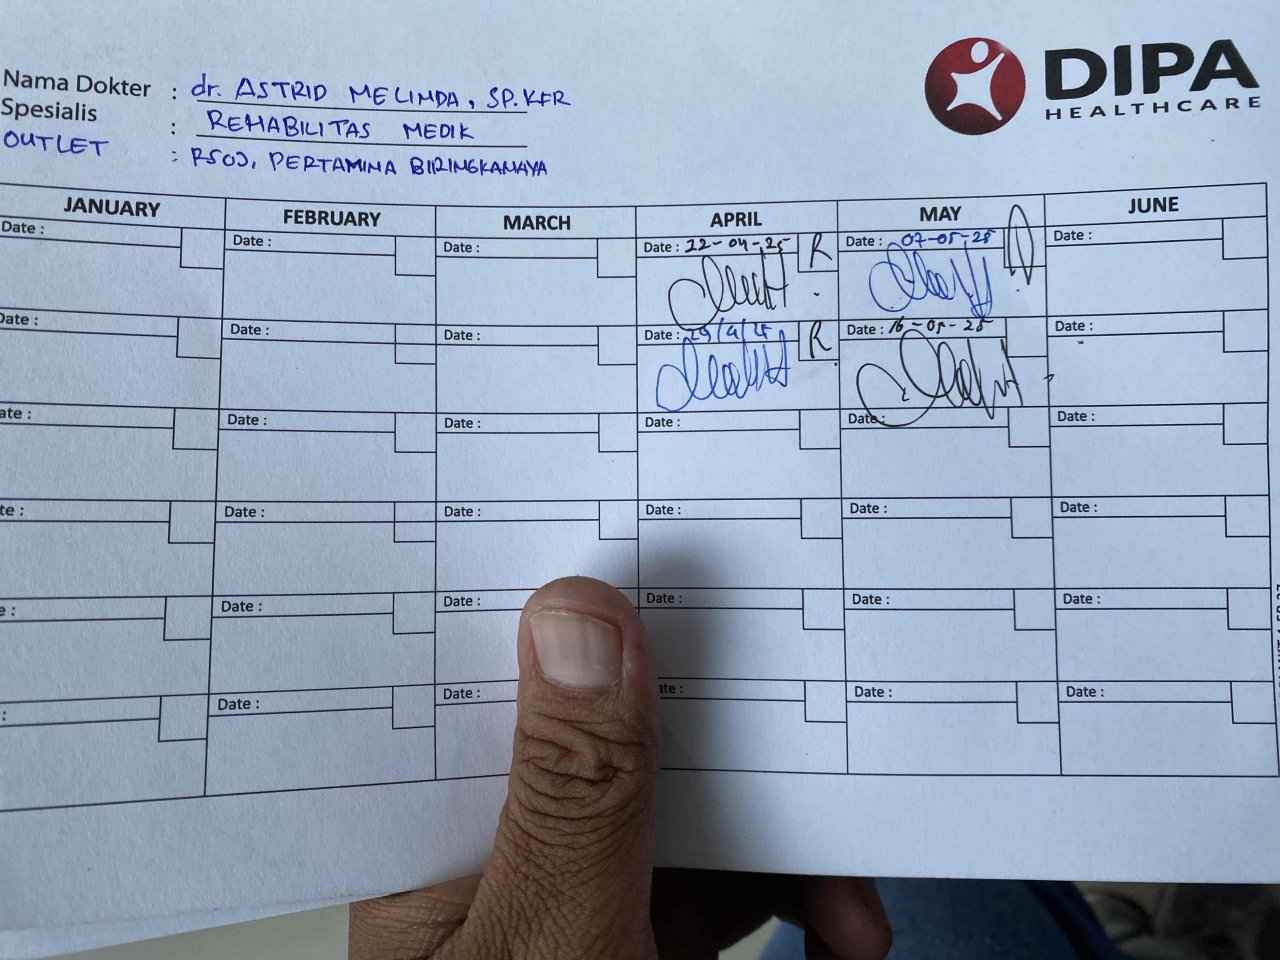 DIPA
HEALTHCARE
Nama Dokter : dr. ASTRID MELINDA, SP.KFR
Spesialis : REHABILITAS MEDIK
OUTLET : RSOJ, PERTAMINA BIRINGKANAYA
JANUARY FEBRUARY MARCH APRIL MAY JUNE
Date : Date : Date : Date : 22-04-25 R Date : 07-05-25 Date :
Date : Date : Date : Date : 29/4/25 R Date : 16-05-25 Date :
ate : Date : Date : Date : Date : Date :
te : Date : Date : Date : Date : Date :
e : Date : Date : Date : Date : Date :
: Date : Date : ate : Date : Date :